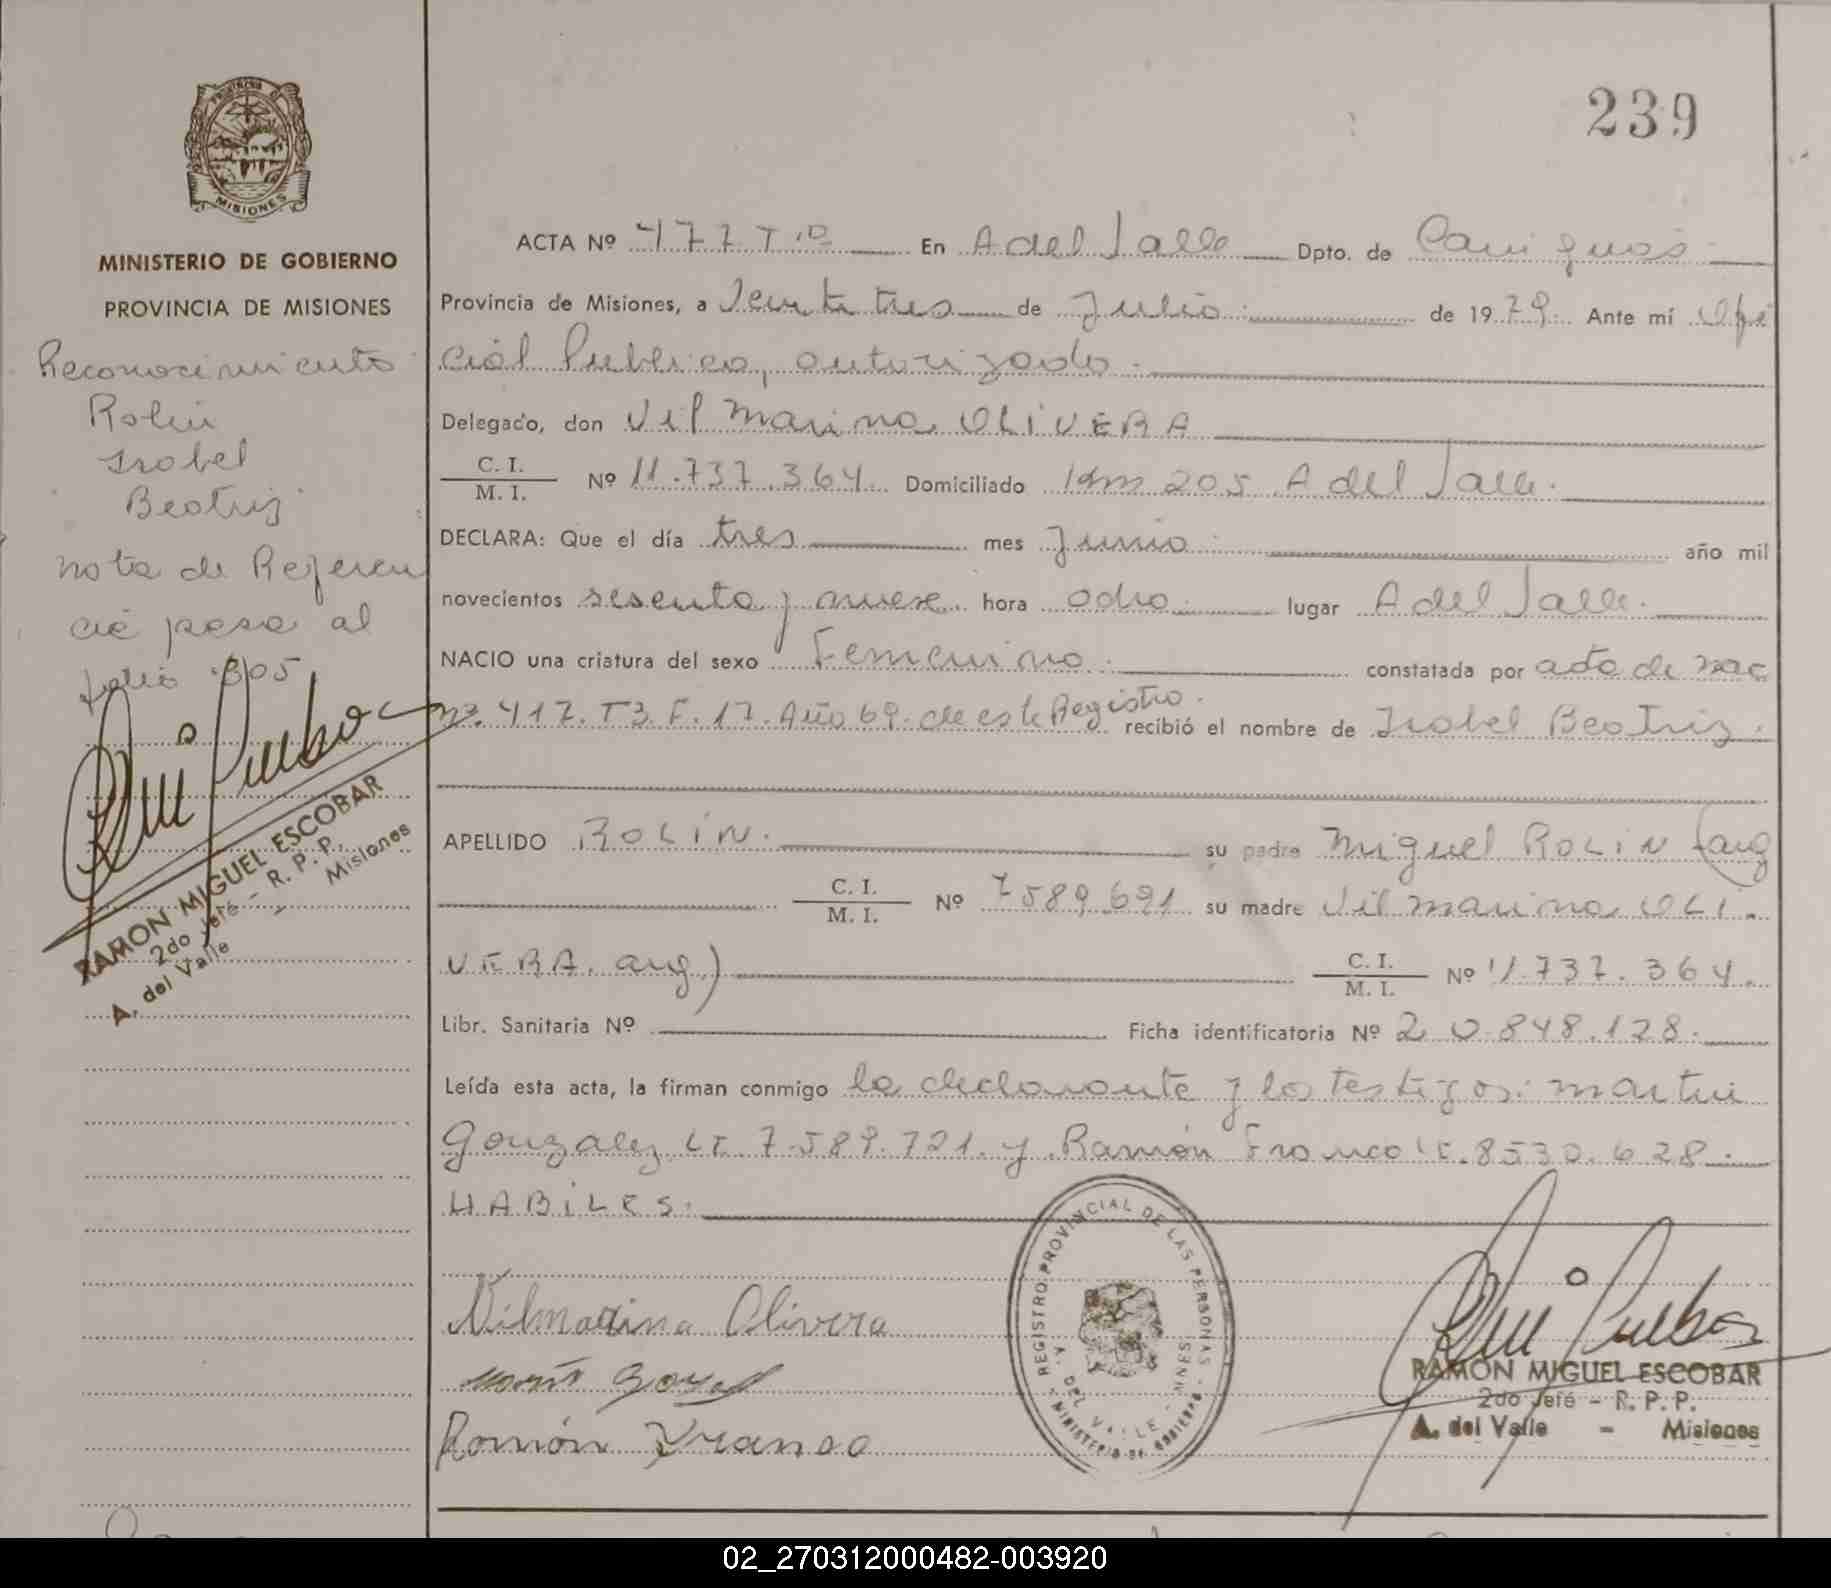 239
PROVINCIA DE
MISIONES
MINISTERIO DE GOBIERNO
PROVINCIA DE MISIONES
Reconocimiento
Rolin
Isabel
Beatriz
nota de Referen
cia pasa al
folio 305
RAMON MIGUEL ESCOBAR
2do Jefe - R. P. P.
A. del Valle - Misiones
ACTA Nº 477 Tº En A del Valle Dpto. de Cainguás
Provincia de Misiones, a Veintitres de Julio de 1979. Ante mí Ofi
cial Publico, autorizado.
Delegado, don Vilmarina OLIVERA
C. I. / M. I. Nº 11.737.364. Domiciliado Km 205 A del Valle.
DECLARA: Que el día tres mes Junio año mil
novecientos sesenta y nueve hora ocho lugar A del Valle.
NACIO una criatura del sexo Femenino. constatada por acta de nac
nº. 417. T3. F. 17. Año 69. de este Registro. recibió el nombre de Isabel Beatriz.
APELLIDO ROLIN. su padre Miguel ROLIN (arg
C. I. / M. I. Nº 7589691 su madre Vilmarina OLI
VERA. arg) C. I. / M. I. Nº 11.737.364.
Libr. Sanitaria Nº Ficha identificatoria Nº 20.848.128.
Leída esta acta, la firman conmigo la declarante y los testigos: Martin
Gonzalez LE. 7.589.721. y Ramón Franco LE. 8530.628
HABILES.
Vilmarina Olivera
Ramón Franco
REGISTRO PROVINCIAL DE LAS PERSONAS
A. DEL VALLE - MNES
MINISTERIO DE GOBIERNO
RAMON MIGUEL ESCOBAR
2do Jefe - R. P. P.
A. del Valle - Misiones
02_270312000482-003920